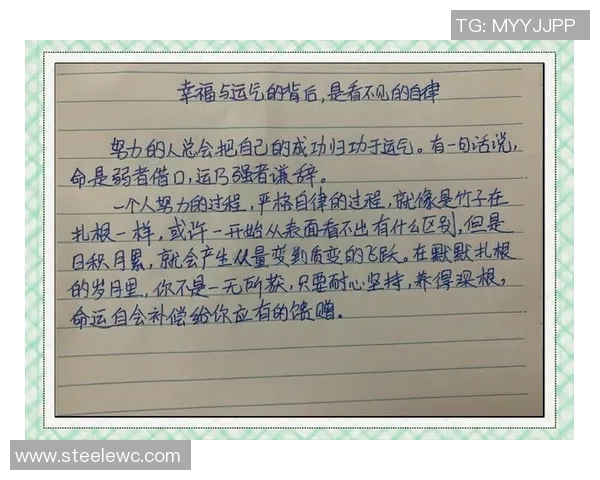 TG: MYYJJPP
幸福与运气的背后,是看不见的自律
努力的人总会把自己的成功归功于运气。有一句话说,
命是弱者借口,运乃强者谦辞。
一个人努力的过程,严格自律的过程,就像是竹子在
扎根一样,或许一开始从表面看不出有什么区别,但是
日积月累,就会产生从量变到质变的飞跃。在默默扎根
的岁月里,你不是一无所获,只要耐心坚持,养得深根,
命运自会补偿给你应有的馈赠。
www.steelewc.com